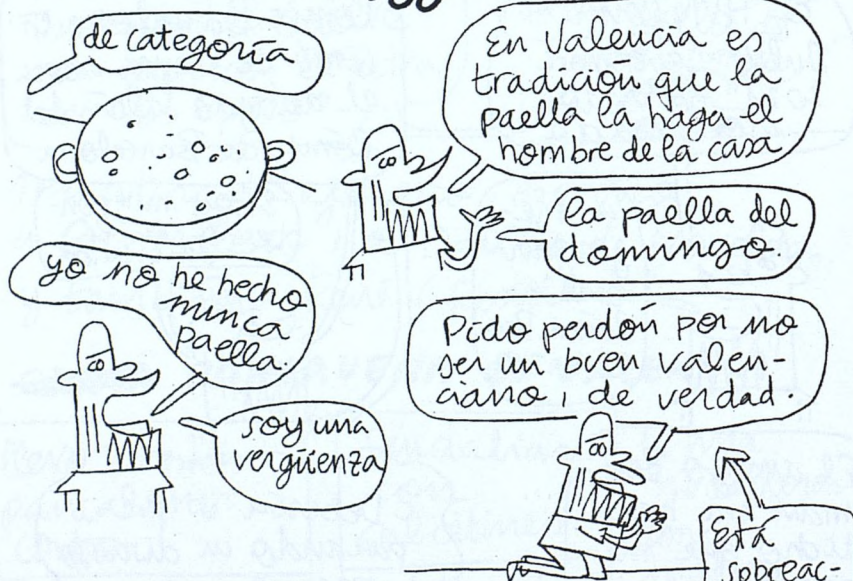 de categoría
En Valencia es
tradición que la
paella la haga el
hombre de la casa
la paella del
domingo.
yo no he hecho
nunca
paella.
soy una
vergüenza
Pido perdón por no
ser un buen valen-
ciano, de verdad.
Está
sobreac-